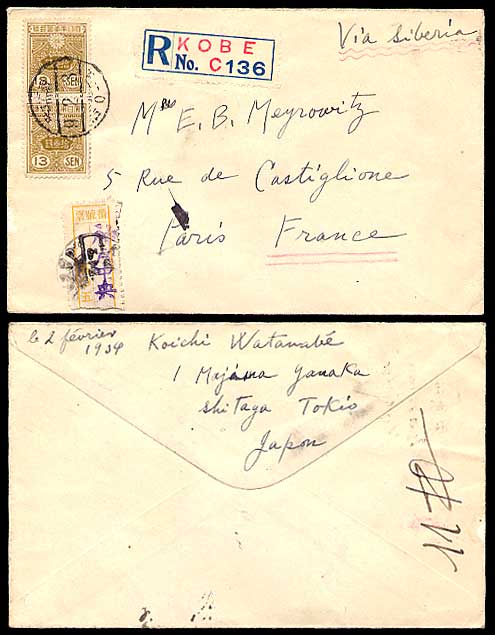 Via Siberia
R KOBE
No. C136
13 SEN
13 SEN
Mrs E. B. Meyrowitz
5 Rue de Castiglione
Paris France
le 2 février
1934
Koichi Watanabé
1 Majima Yanaka
Shitaya Tokio
Japon